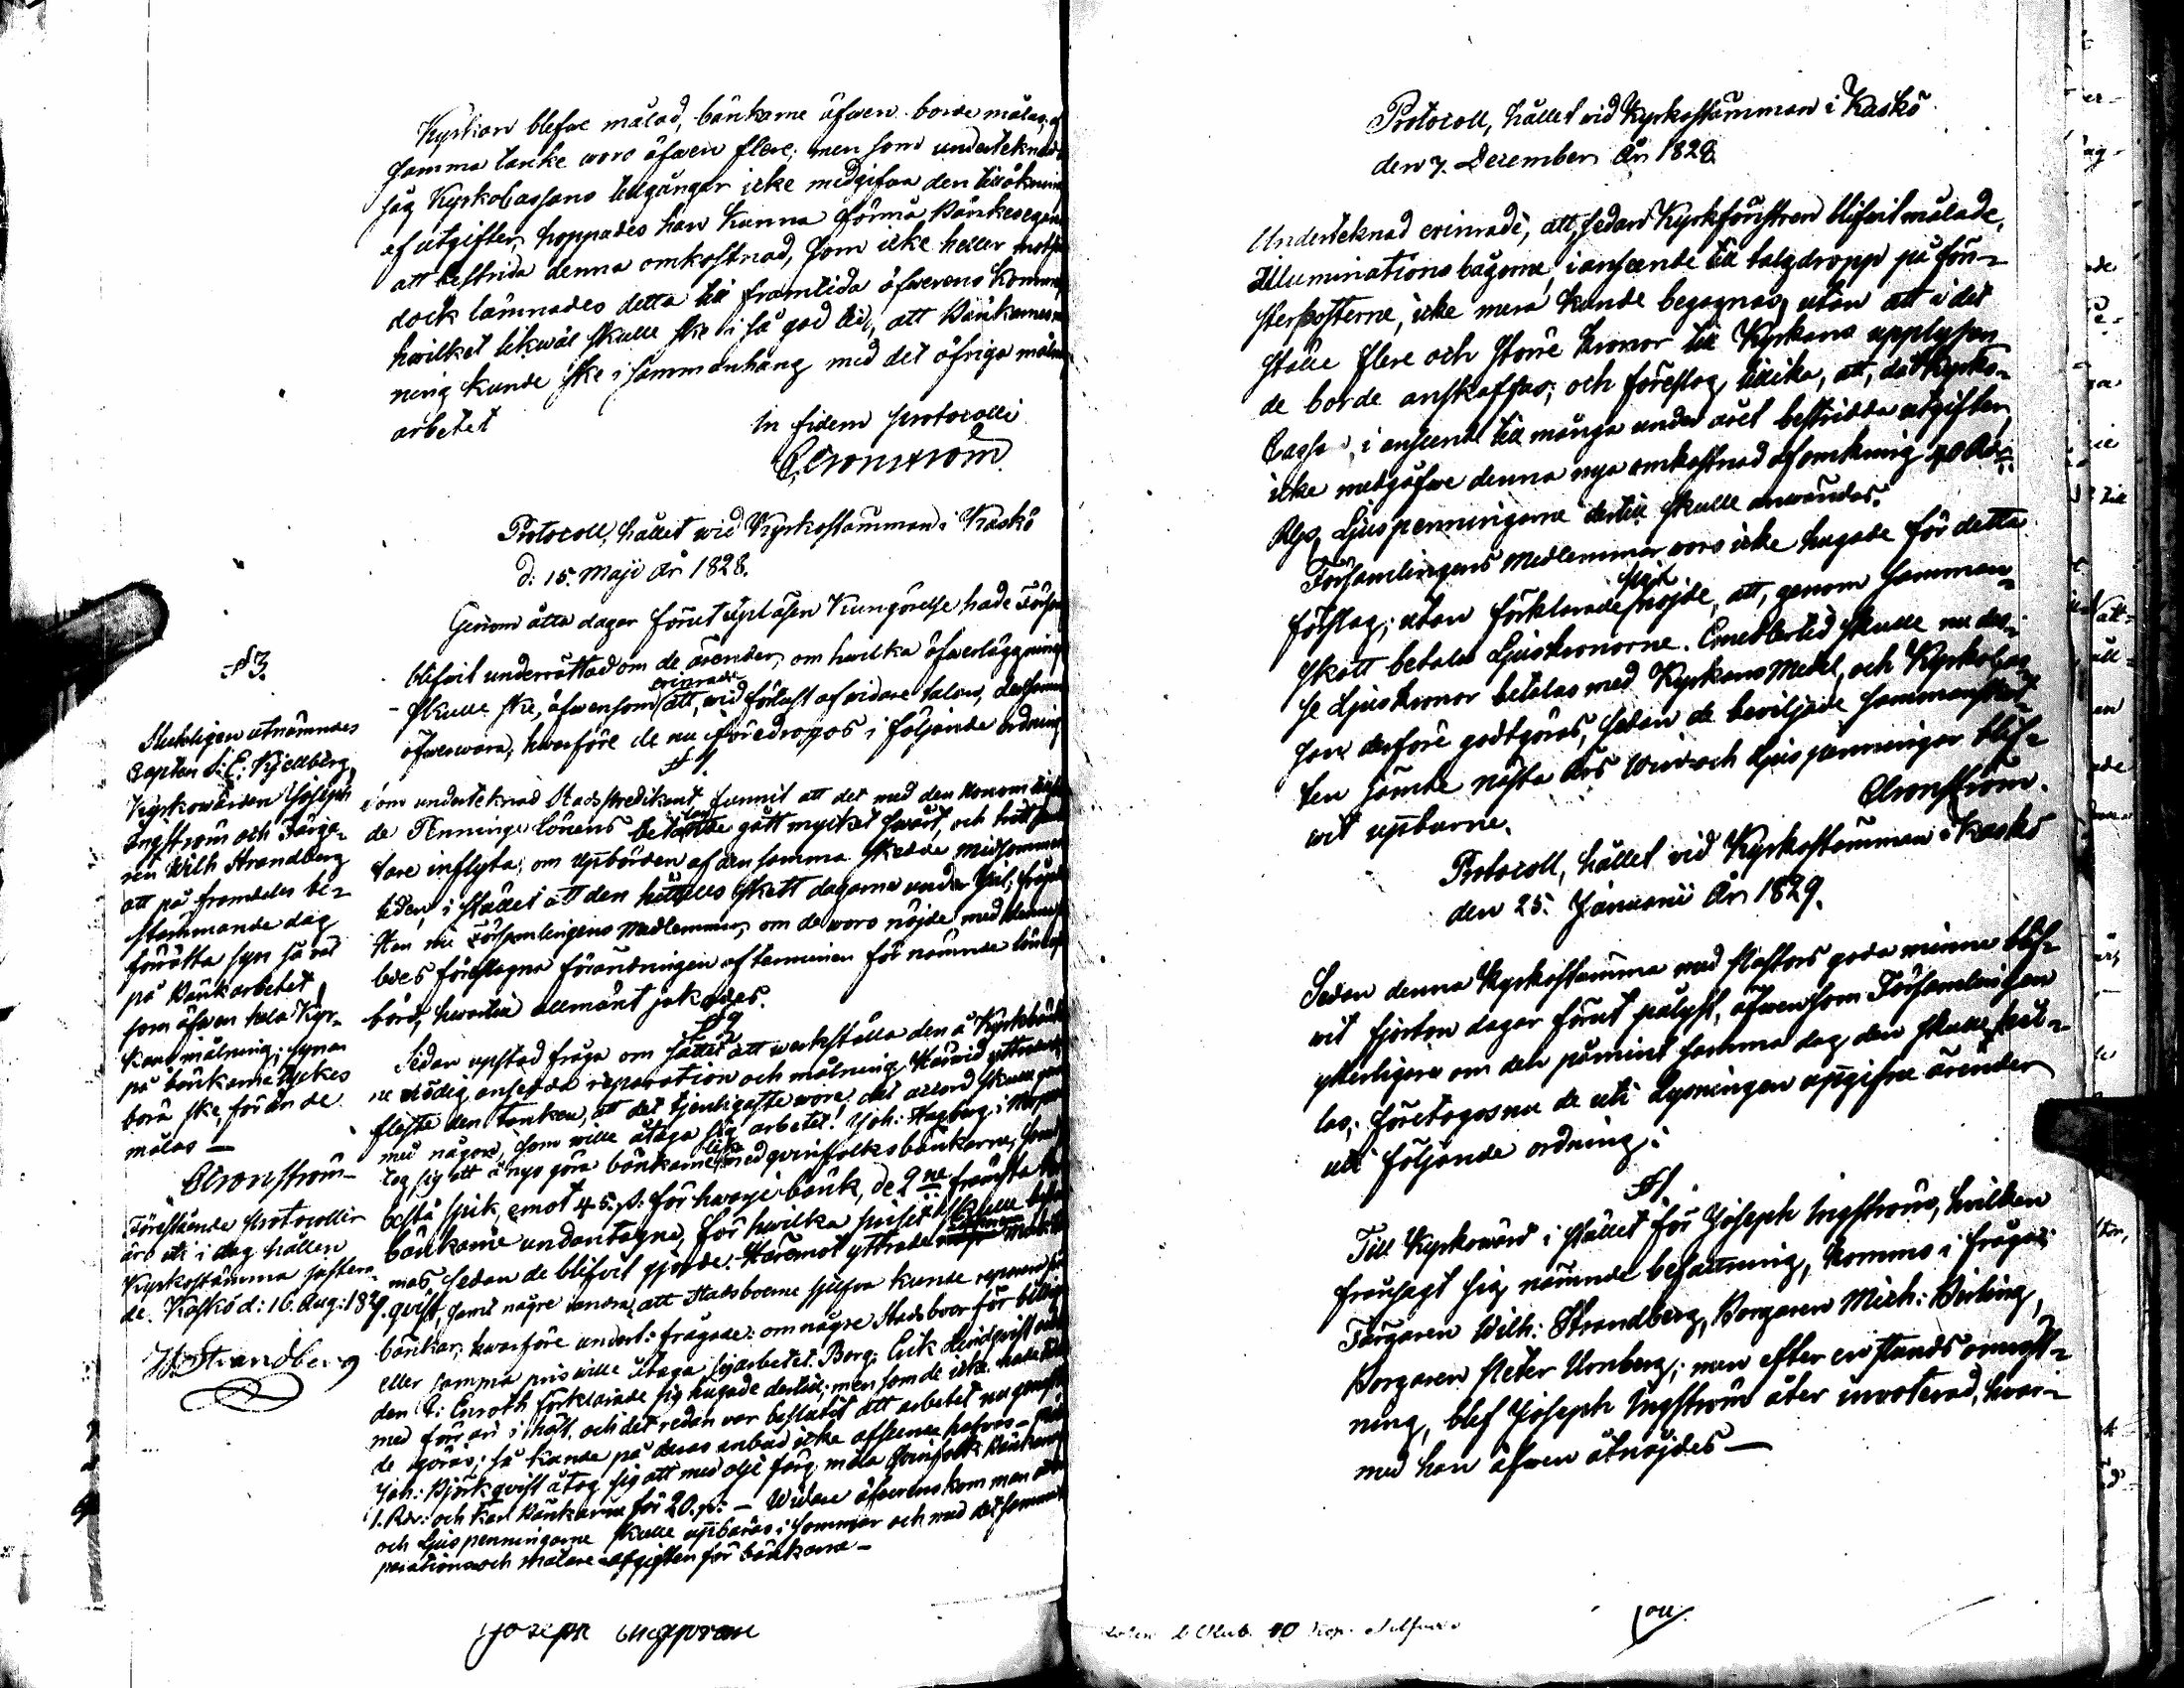 Kyrkan blefve målad, bänkarne äfwen borde målas; af
samma tanke woro äfwen flere; men som underteknad
såg Kyrkocassans tillgångar icke medgifwa den tillökning
af utgifter, hoppades han kunna förmå Bänkesegarne
att bestrida denna omkostnad, som icke heller
dock lämnades detta till framtida öfwerens komm
hwilket likwäl skulle ske i så god tid, att Bänkarnes
ning kunde ske i sammanhang med det öfriga måln
arbetet
In fidem protocolli
C Cronström
Protocoll, hållet wid Kyrkostämman i Kaskö
d: 15. Maji År 1828.
Genom åtta dagar förut uplåsen Kungörelse hade Förs
blifwit underrättad om de ärender, om hwilka öfwerläggning
skulle ske, äfwensom erinrade att, wid förlust af widare talan, der
öfwerwara, hwarföre de nu föredrogos i följande ordning
§ 1
Som undertecknad Stadspredikant funnit att det med den Konom
de Penninge Lönens betalande gått mycket swårt, och trott
tare inflyta, om upbörden af den samma skedde midsommar
tiden, i stället att den hittills skett dagarne under Jul, frå
Han nu Församlingens Medlemmar, om de woro nöjde med denna
bdes föreslagna förändringen af terminen för nämnde löne
börd, hwartill allmänt jakades.
§ 2
Sedan upstod fråga om sättet att werkställa den å Kyrkbänk
ne nödig ansedda reparation och målning. Härwid yttrade
fleste den tanken, att det tjenligaste wore, det accord skulle
med någon, som wille åtaga sig arbetet! Joh: Hagberg i
tog sig att å nyo göra bänkarne lika med qwinfolksbänkarne, som
bestå spik, emot 45. k: för hwarje bänk, de 2ne främsta
bänkarne undantagne, för hwilka priset skulle best
mas sedan de blifwit gjorde. Häremot yttrade
qwist, samt några andra, att Stadsboerne sjelfwa kunde reparera
bänkar, hwarföre undert: frågade: om några Stadsboer för billig
eller samma pris wille åtaga sig arbetet. Borg: Erik Lindqwist
den C: Enroth förklarade sig hugade dertill, men som de icke hade
med förr än i höst, och det redan war beslutit att arbetet nu genast
de göras; så kunde på deras anbud icke afseende hafwas —
Joh: Björkqwist åtog sig att med olje färg måla Qwinfolk Bänkarne
1. Rdr: och Karl Bänkarne för 20. k: — Widare öfwerens kom man
och Ljuspenningarne skulle upbäras i Sommar och med det samma
parations och målare afgiften för bänkarne —
Joseph Ingström
§ 3.
Slutligen utnämndes
Capten S: E: Kjellberg,
Kyrkowärden Joseph
Ingström och Färga-
ren Wilh Strandberg
att på framdeles be-
stämmande dag
förrätta syn så wäl
på Bänkarbetet
som äfwen hela Kyr-
kans målning; synen
på bänkarne tyckes
böra ske, förän de
målas —
C Cronström
Förestående protocoller
äro uti i dag hållen
Kyrkostämma justera-
de. Kaskö d: 16. Aug: 1829.
W. Strandberg
Protocoll, hållet wid Kyrkostämman i Kaskö
den 7. December År 1828.
Undertecknad erinrade, att, sedan Kyrkfönstren blifwit målade,
Illuminations bågarne, i anseende till talgdropp på fön-
sterposterne, icke mera kunde begagnas, utan att i det
ställe flere och större kronor till Kyrkans upplysan
de borde anskaffas; och föreslog tillika, att, då Kyrko-
Cassa, i anseende till många under året bestridda utgifter,
icke medgåfwe denna nya omkostnad af omkring 40 Rdr
Rgs, Ljuspenningarne dertill skulle användas.
Församlingens Medlemmar woro icke hugade för detta
förslag; utan förklarade sig nöjde, att, genom samman-
skott betala Ljuskronorne. Emedlertid skulle nu des-
se Ljuskronor betalas med Kyrkans Medel, och Kyrkocas-
san derföre godtgöras, sedan de beviljade sammanskot-
ten jämte nästa års Win- och Ljuspenningar blif-
wit upburne.
C Cronström.
Protocoll, hållet vid Kyrkostämman i Kaskö
den 25. Januarii År 1829.
Sedan denna Kyrkostämma med Pastors goda minne blif-
vit fjorton dagar förut pålyst, äfwensom Församlingen
ytterligare om den påmint samma dag, den skulle hål-
las, företogos nu de uti Lysningen upgifne ärender
uti följande ordning:
§ 1
Till Kyrkowärd i stället för Joseph Ingström, hwilken
frånsagt sig nämnde befattning, kommo i fråga:
Färgaren Wilh: Strandberg, Borgaren Mich: Birling,
Borgaren Peter Kronberg; men efter en stunds omröst-
ning, blef Joseph Ingström åter inwoterad, hwar-
med han äfwen åtnöjdes —